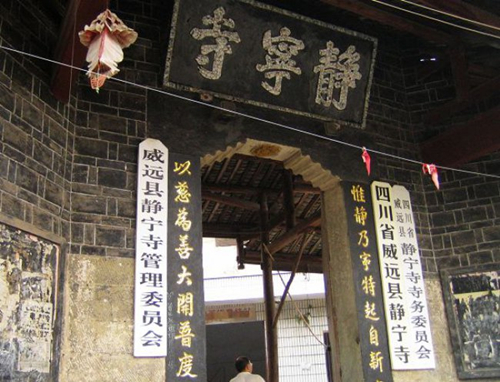 靜寧寺
四川省
威远县
静宁寺寺务委员会
四川省威远县静宁寺
惟靜乃寧特起自新
以慈為善大開普度
威远县静宁寺管理委员会